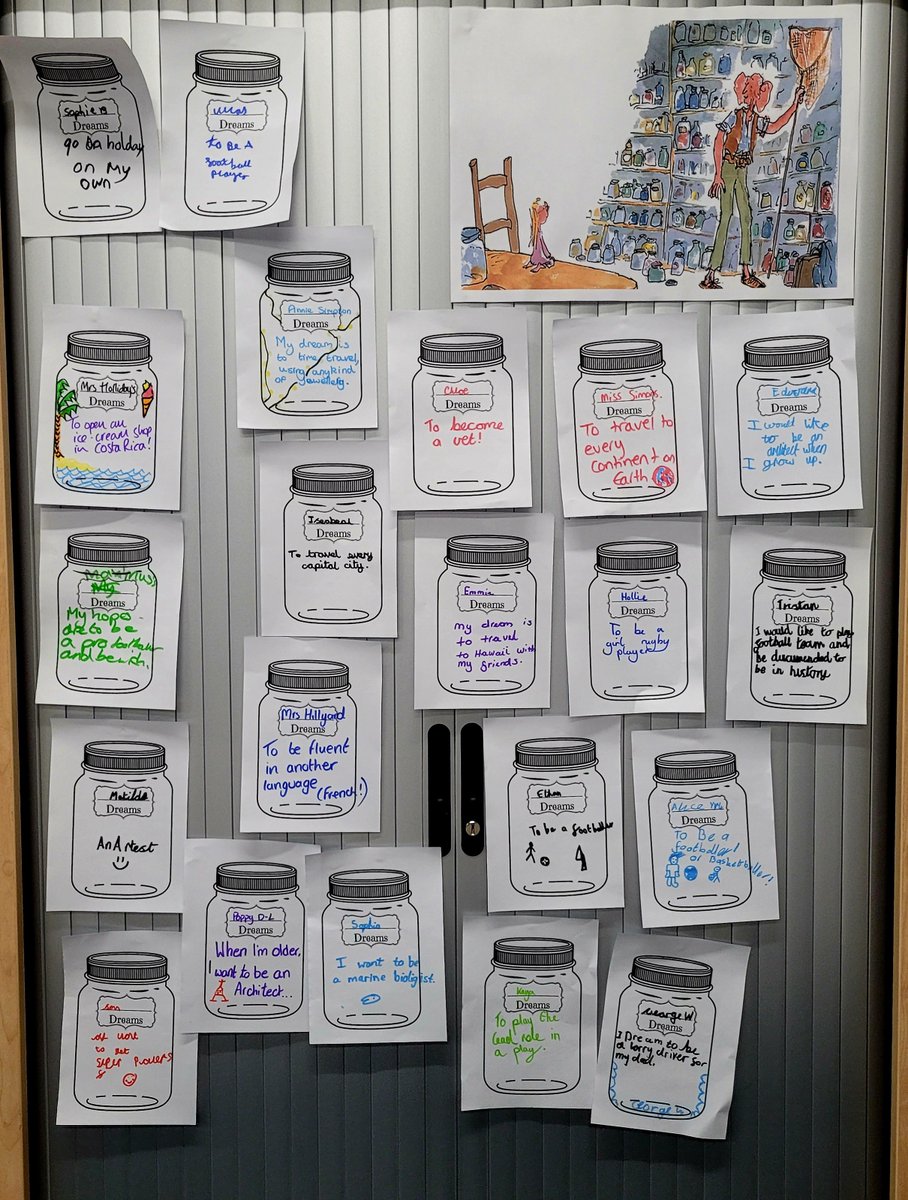 Sophie B
Dreams
go on holiday
on my
own
Dreams
To Be A
football
player
Annie Simpson
Dreams
My dream is
to time travel,
using anykind
of jewellery.
Mrs Holliday's
Dreams
To open an
ice-cream shop
in Costa Rica!
Chloe
Dreams
To become
a vet!
Miss Simons.
Dreams
To travel to
every
continent on
Earth
Edward
Dreams
I would like
to be an
architect when
I grow up.
Iseabeal
Dreams
To travel every
capital city.
Maximus,
Dreams
My hopes
are to be
a pro footballer
and be rich.
Emmie
Dreams
my dream is
to travel
to Hawaii with
my friends.
Hollie
Dreams
To be a
girl rugby
player
Tristan
Dreams
I would like to play
football team and
be documended to
be in history
Mrs Hillyard
Dreams
To be fluent
in another
language
(French!)
Matilda
Dreams
An Artest
Ethan
Dreams
To be a footballer
Alice
Dreams
To Be a
footballer!
or Basketballer!
Poppy D-L
Dreams
When I'm older,
I want to be an
Architect...
Sophia
Dreams
I want to be
a marine bioligist.
Dreams
to get
super Powers
Kaya
Dreams
To play the
lead role in
a play.
George W
Dreams
I Dream to be
a lorry driver for
my dad.
George W